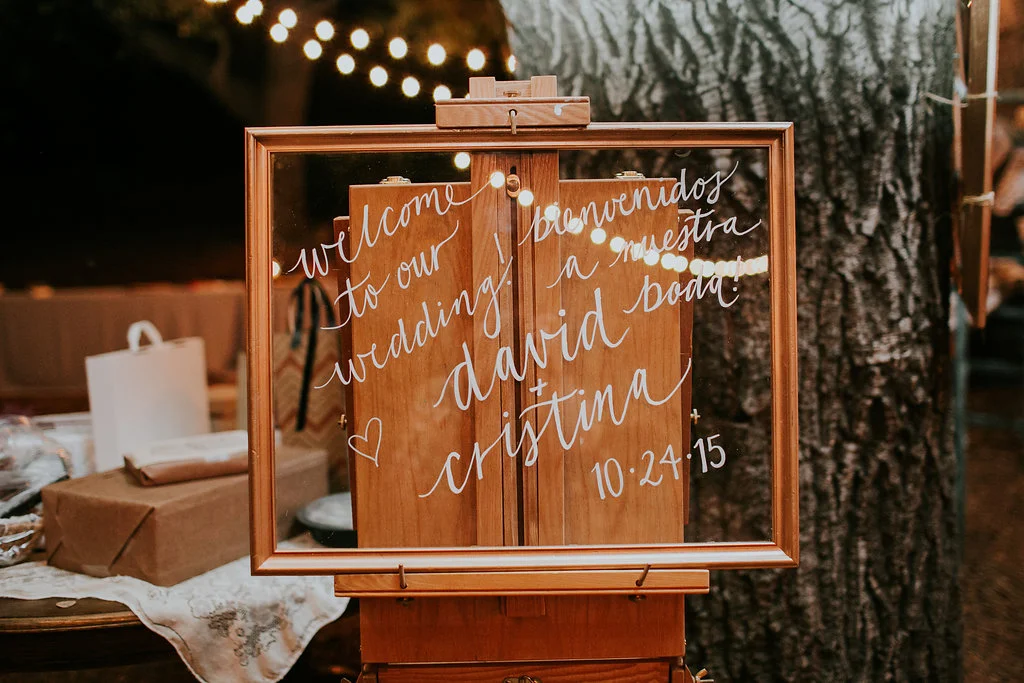 welcome
to our
wedding!
bienvenidos
a nuestra
boda!
david
+
cristina
10·24·15